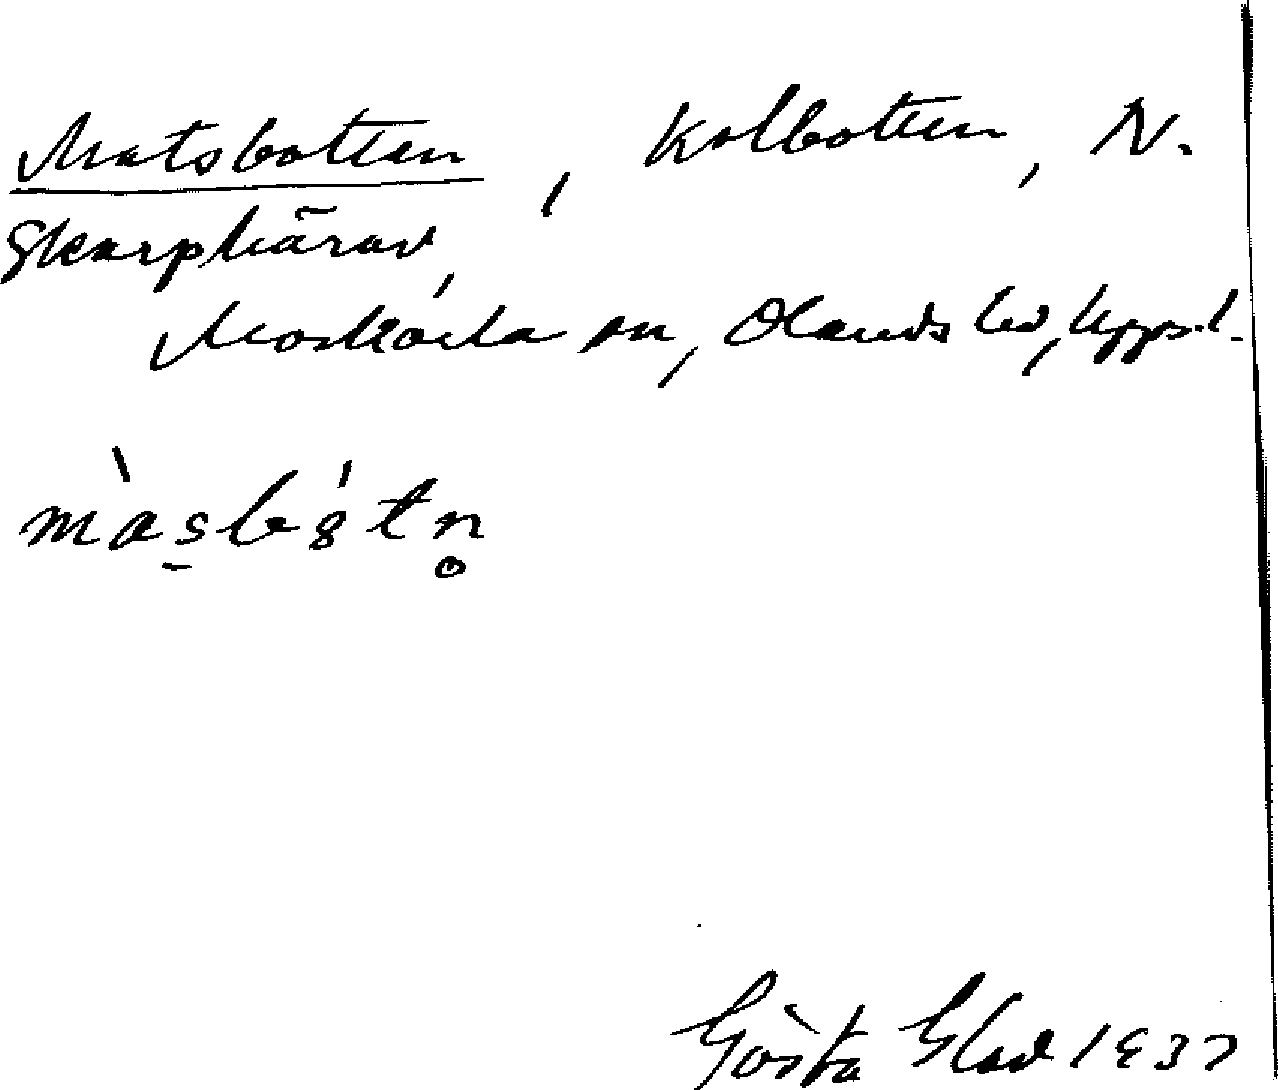 Matsbotten, Kolbotten, N.
Skarphärad,
Morkarla sn, Olands hd, Uppsl.
Gösta Glad 1937